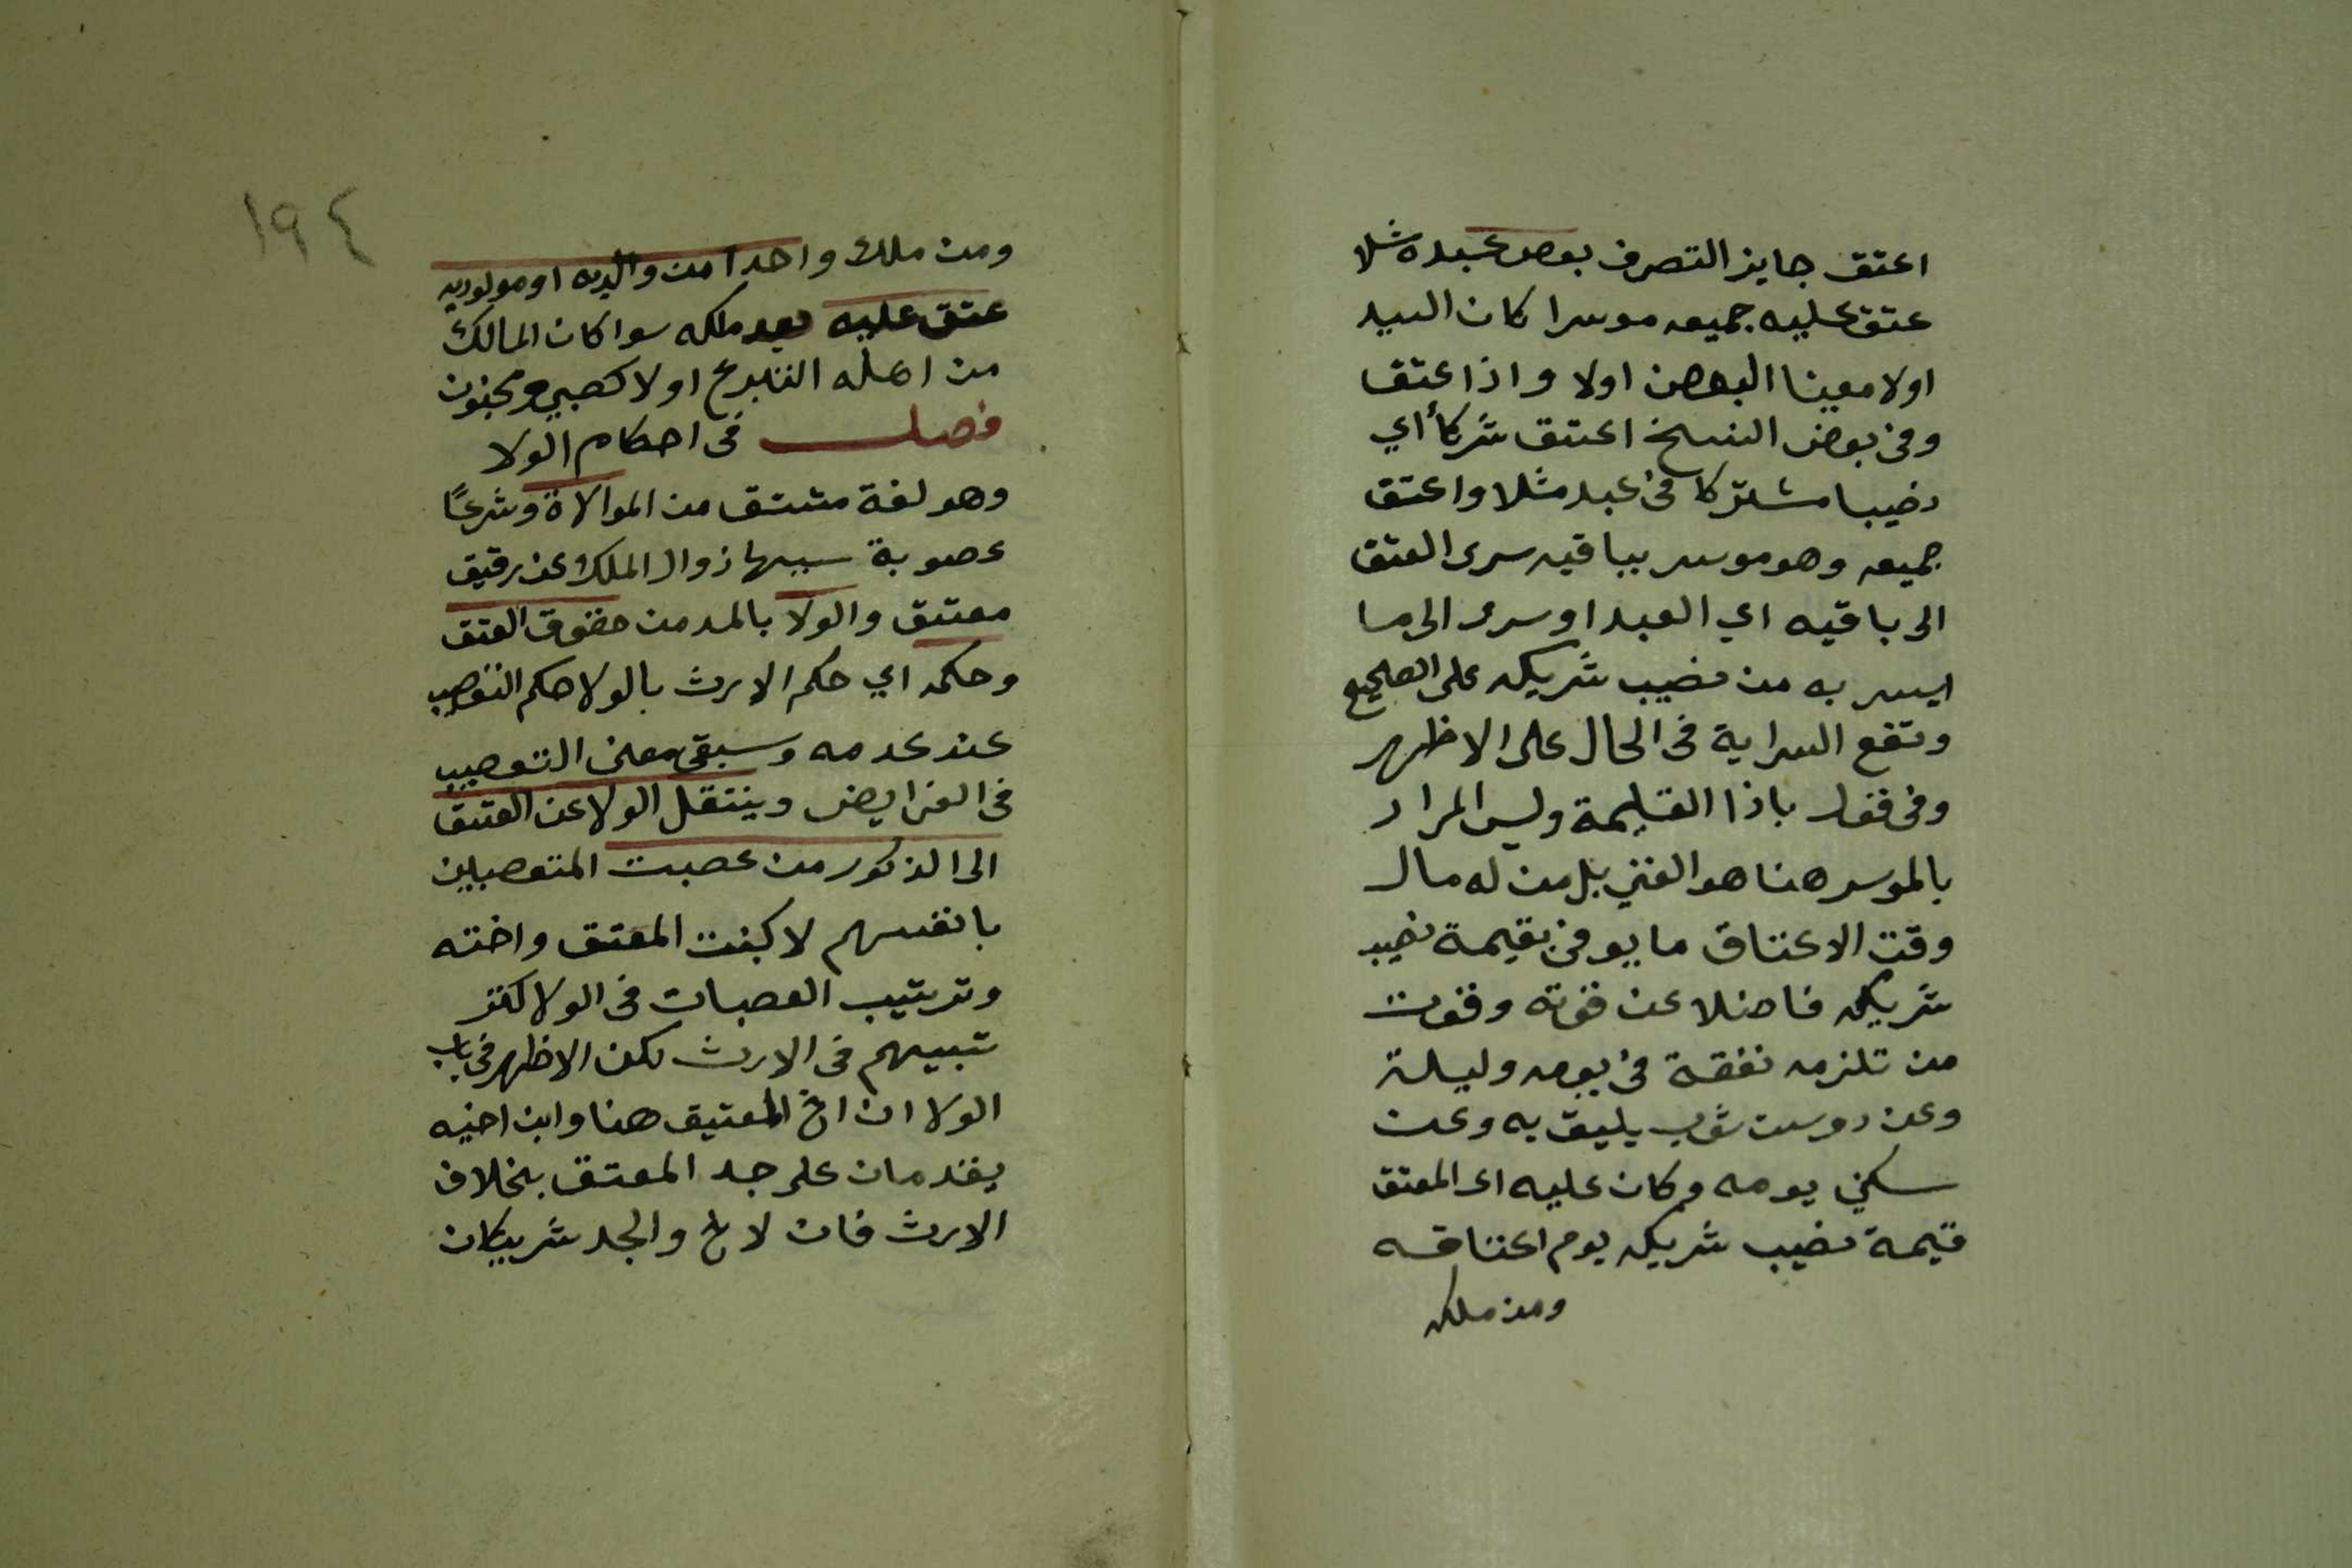 اعتق جايز التصرف بعض عبده مثلا
عتق عليه جميعه موسرا كان السيد
اولا معينا البعض اولا واذا عتق
وفي بعض النسخ اعتق شركاً اي
نصيبا مشتركا في عبد مثلا واعتق
جميعه وهو موسر بباقيه سرى العتق
الى باقيه اي العبد او سرى الى ما
ايسر به من نصيب شريكه على الصحيح
وتقع السراية في الحال على الاظهر
وفي قول باذا القيمة وليس المراد
بالموسر هنا هو الغني بل من له مال
وقت الاعتاق ما يوفي بقيمة نصيب
شريكه فاضلا عن قوته وقوت
من تلزمه نفقة في يومه وليلته
وعن دوست ثوب يليق به وعن
سكني يومه وكان عليه اى المعتق
قيمة نصيب شريكه يوم اعتاقه
ومن ملك
١٩٤
ومن ملك واحدا من والديه او مولوديه
عتق عليه بعد ملكه سوا كان المالك
من اهله التبرع اولا كصبي ومجنون
فصل في احكام الولا
وهو لغة مشتق من الموالاة وشرعًا
عصوبة سببها زوال الملك عن رقيق
معتق والولا بالمد من حقوق العتق
وحكمه اي حكم الارث بالولا حكم التعصيب
عند عدمه وسبق معنى التعصيب
في الفرايض وينتقل الولا عن العتق
الى الذكور من عصبت المتعصبين
بانفسهم لا كبنت المعتق واخته
وترتيب العصبات في الولا كتر
تبيهم في الارث لكن الاظهر في باب
الولا ان اخ المعتيق هنا وابن اخيه
يقدمان على جد المعتق بخلاف
الارث فان لاخ والجد شريكان